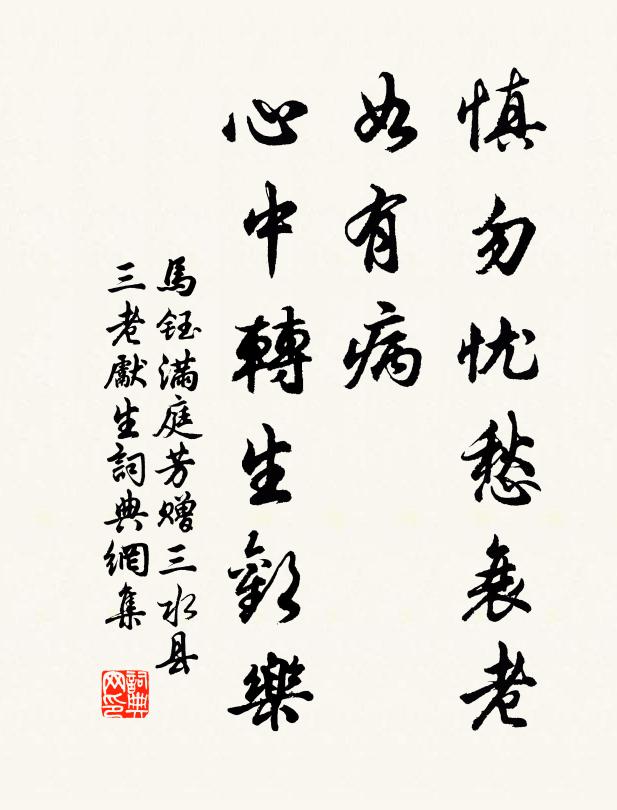 慎勿忧愁衰老
如有病
心中轉生歡樂
馬鈺满庭芳赠三水县
三老獻生詞典網集
詞典网印